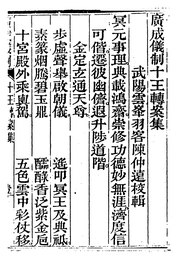 廣成儀制十王轉案集
武陽雲峯羽客陳仲遠校輯
冥元事理典載鴻齋崇修功德妙無涯濟度信
可偕還彼幽儔遐升陟道階
金定玄通天尊
步虛聲舉啟朝儀　遙叩冥王及典祗
素篆烟騰碧玉鼎　醍醐香泛紫金卮
十宮殿外乘輿駕　五色雲中彩仗移